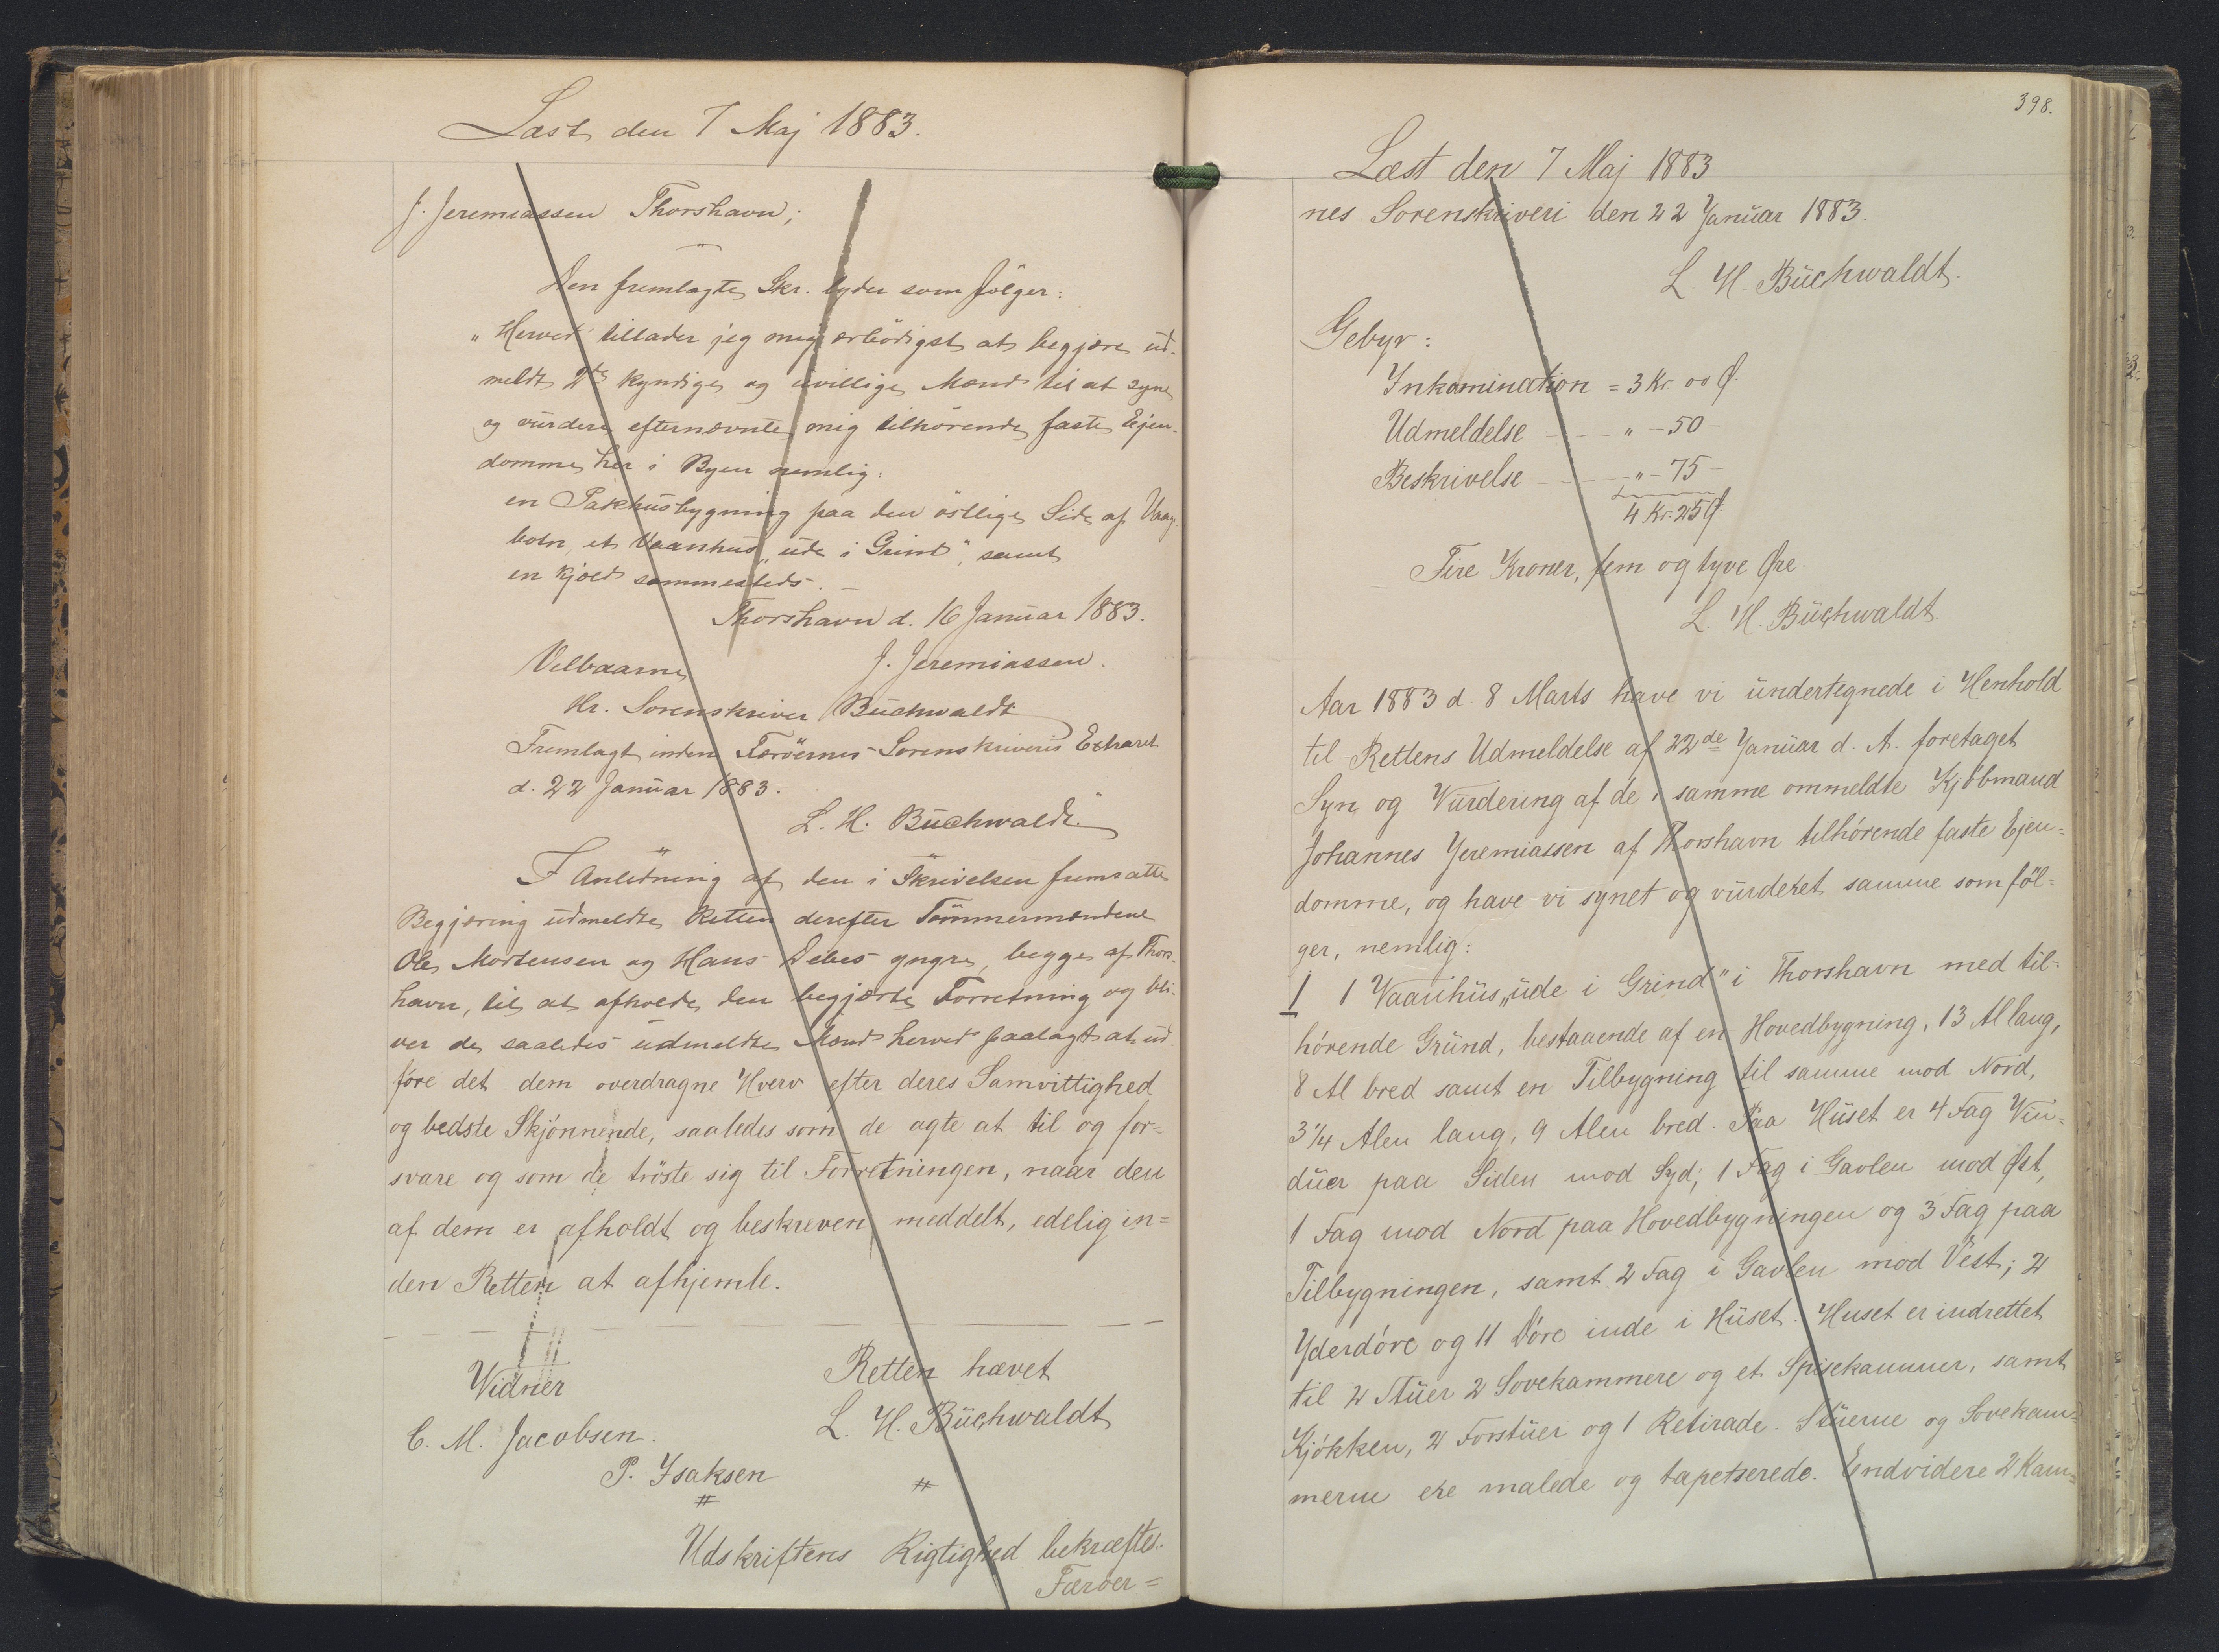 Læst den 7 Maj 1883.
J. Jeremiassen Thorshavn;
Den fremlagte Skr. lyder som følger:
"Herved tillader jeg mig ærbödigst at begjære ud-
meldt 2de kyndige og uvillige Mænd til at syne
og vurdere efternævnte mig tilhørende faste Ejen-
domme her i Byen nemlig:
en Pakhusbygning paa den östlige Side af Vaag-
botn, et Vaanhus "ude i Grind", samt
en Kjæld sammesteds.
Thorshavn d. 16 Januar 1883.
J. Jeremiassen.
Velbaarne
Hr. Sorenskriver Buchwaldt
Fremlagt inden Færöernes Sorenskriveris Extraret
d. 22 Januar 1883.
L. H. Buchwaldt.
I Anledning af den i Skrivelsen fremsatte
Begjæring udmeldte Retten derefter Tömmermændene
Ole Mortensen og Hans Debes yngre, begge af Thors-
havn, til at afholde den begjærte Forretning og bli-
ver de saaledes udmeldte Mænd herved paalagt at ud-
føre det dem overdragne Hverv efter deres Samvittighed
og bedste Skjønnende, saaledes som de agte at til og for=
svare og som de tröste sig til Forretningen, naar den
af dem er afholdt og beskreven meddelt, edelig in=
den Retten at afhjemle.
Retten hævet
L. H. Buchwaldt
Vidner
C. M. Jacobsen.
P. Isaksen
Udskriftens Rigtighed bekræftes.
Færøer=
398.
Læst den 7 Maj 1883
nes Sorenskriveri den 22 Januar 1883.
L. H. Buchwaldt.
Gebyr:
Inkamination = 3 Kr. 00 Ø.
Udmeldelse — " — 50 —
Beskrivelse — " — 75 —
4 Kr. 25 Ø
Fire Kroner, fem og tyve Øre.
L. H. Buchwaldt.
Aar 1883 d. 8 Marts have vi undertegnede i Henhold
til Rettens Udmeldelse af 22de Januar d. A. foretaget
Syn og Vurdering af de i samme ommeldte Kjöbmand
Johannes Jeremiassen af Thorshavn tilhörende faste Ejen=
domme, og have vi synet og vurderet samme som föl=
ger, nemlig:
1 1 Vaanhus "ude i Grind" i Thorshavn med til-
hörende Grund, bestaaende af en Hovedbygning, 13 Al lang,
8 Al bred samt en Tilbygning til samme mod Nord,
3 1/4 Alen lang, 9 Alen bred. Paa Huset er 4 Fag Vin=
duer paa Siden mod Syd; 1 Fag i Gavlen mod Øst,
1 Fag mod Nord paa Hovedbygningen og 3 Fag paa
Tilbygningen, samt 2 Fag i Gavlen mod Vest; 2
Yderdöre og 11 Döre inde i Huset. Huset er indrettet
til 2 Stuer 2 Sovekammere og et Spisekammer, samt
Kjökken, 2 Forstuer og 1 Retirade. Stuerne og Sovekam=
merne ere malede og tapetserede. Endvidere 2 Kam=